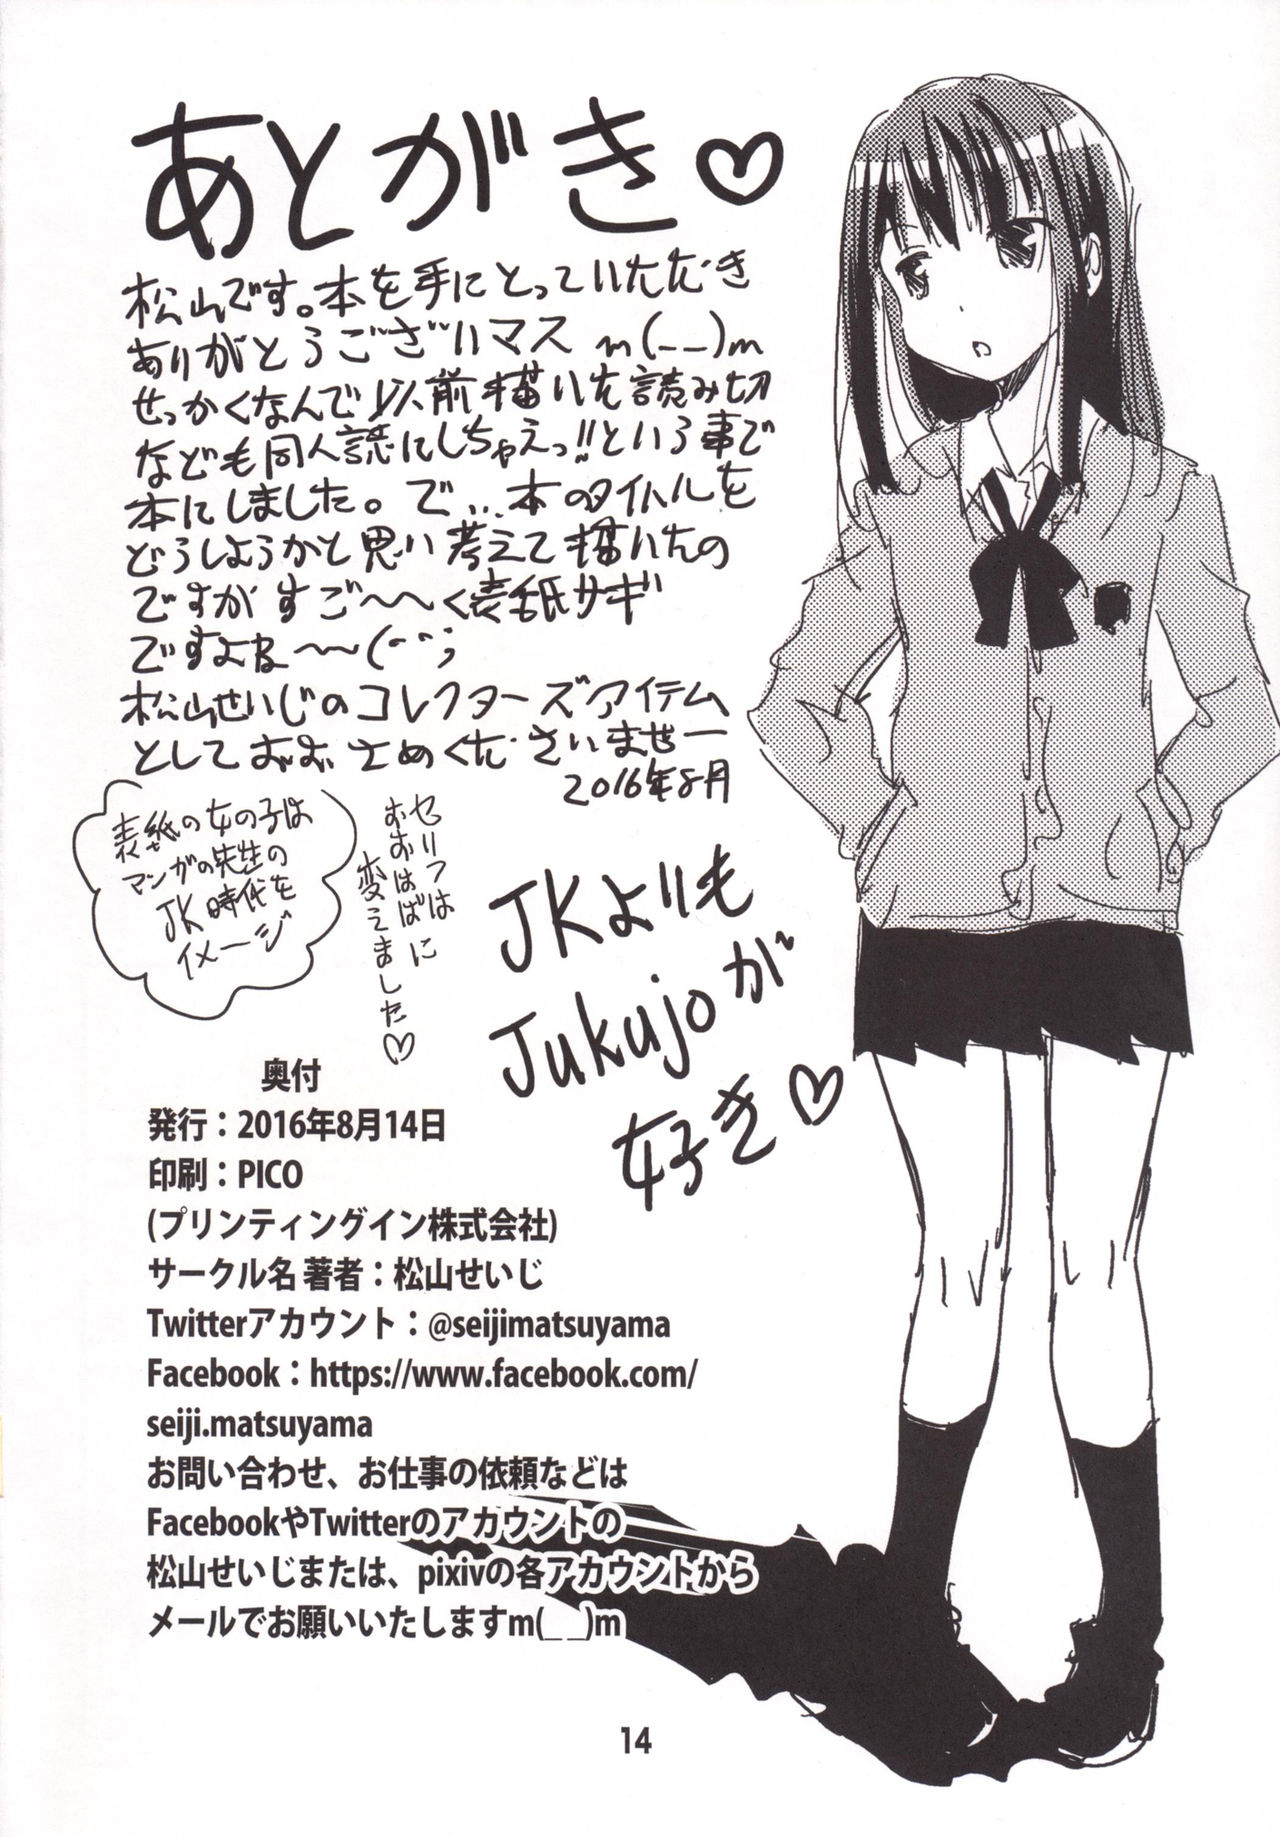 あとがき♡
松山です。本を手にとっていただき
ありがとうございマス m(__)m
せっかくなんで以前描いた読み切
なども同人誌にしちゃえっ!!という事で
本にしました。で…本のタイトルを
どうしようかと思い考えて描いたの
ですがすご〜〜く表紙サギ
ですよね〜〜(^^;
松山せいじのコレクターズアイテム
としておおさめくださいませー
2016年8月
セリフは
おおはばに
変えました♡
表紙の女の子は
マンガの先生の
JK時代を
イメージ
JKよりも
Jukujoが
好き♡
奥付
発行：2016年8月14日
印刷：PICO
(プリンティングイン株式会社)
サークル名 著者：松山せいじ
Twitterアカウント：@seijimatsuyama
Facebook：https://www.facebook.com/
seiji.matsuyama
お問い合わせ、お仕事の依頼などは
FacebookやTwitterのアカウントの
松山せいじまたは、pixivの各アカウントから
メールでお願いいたしますm(_ _)m
14